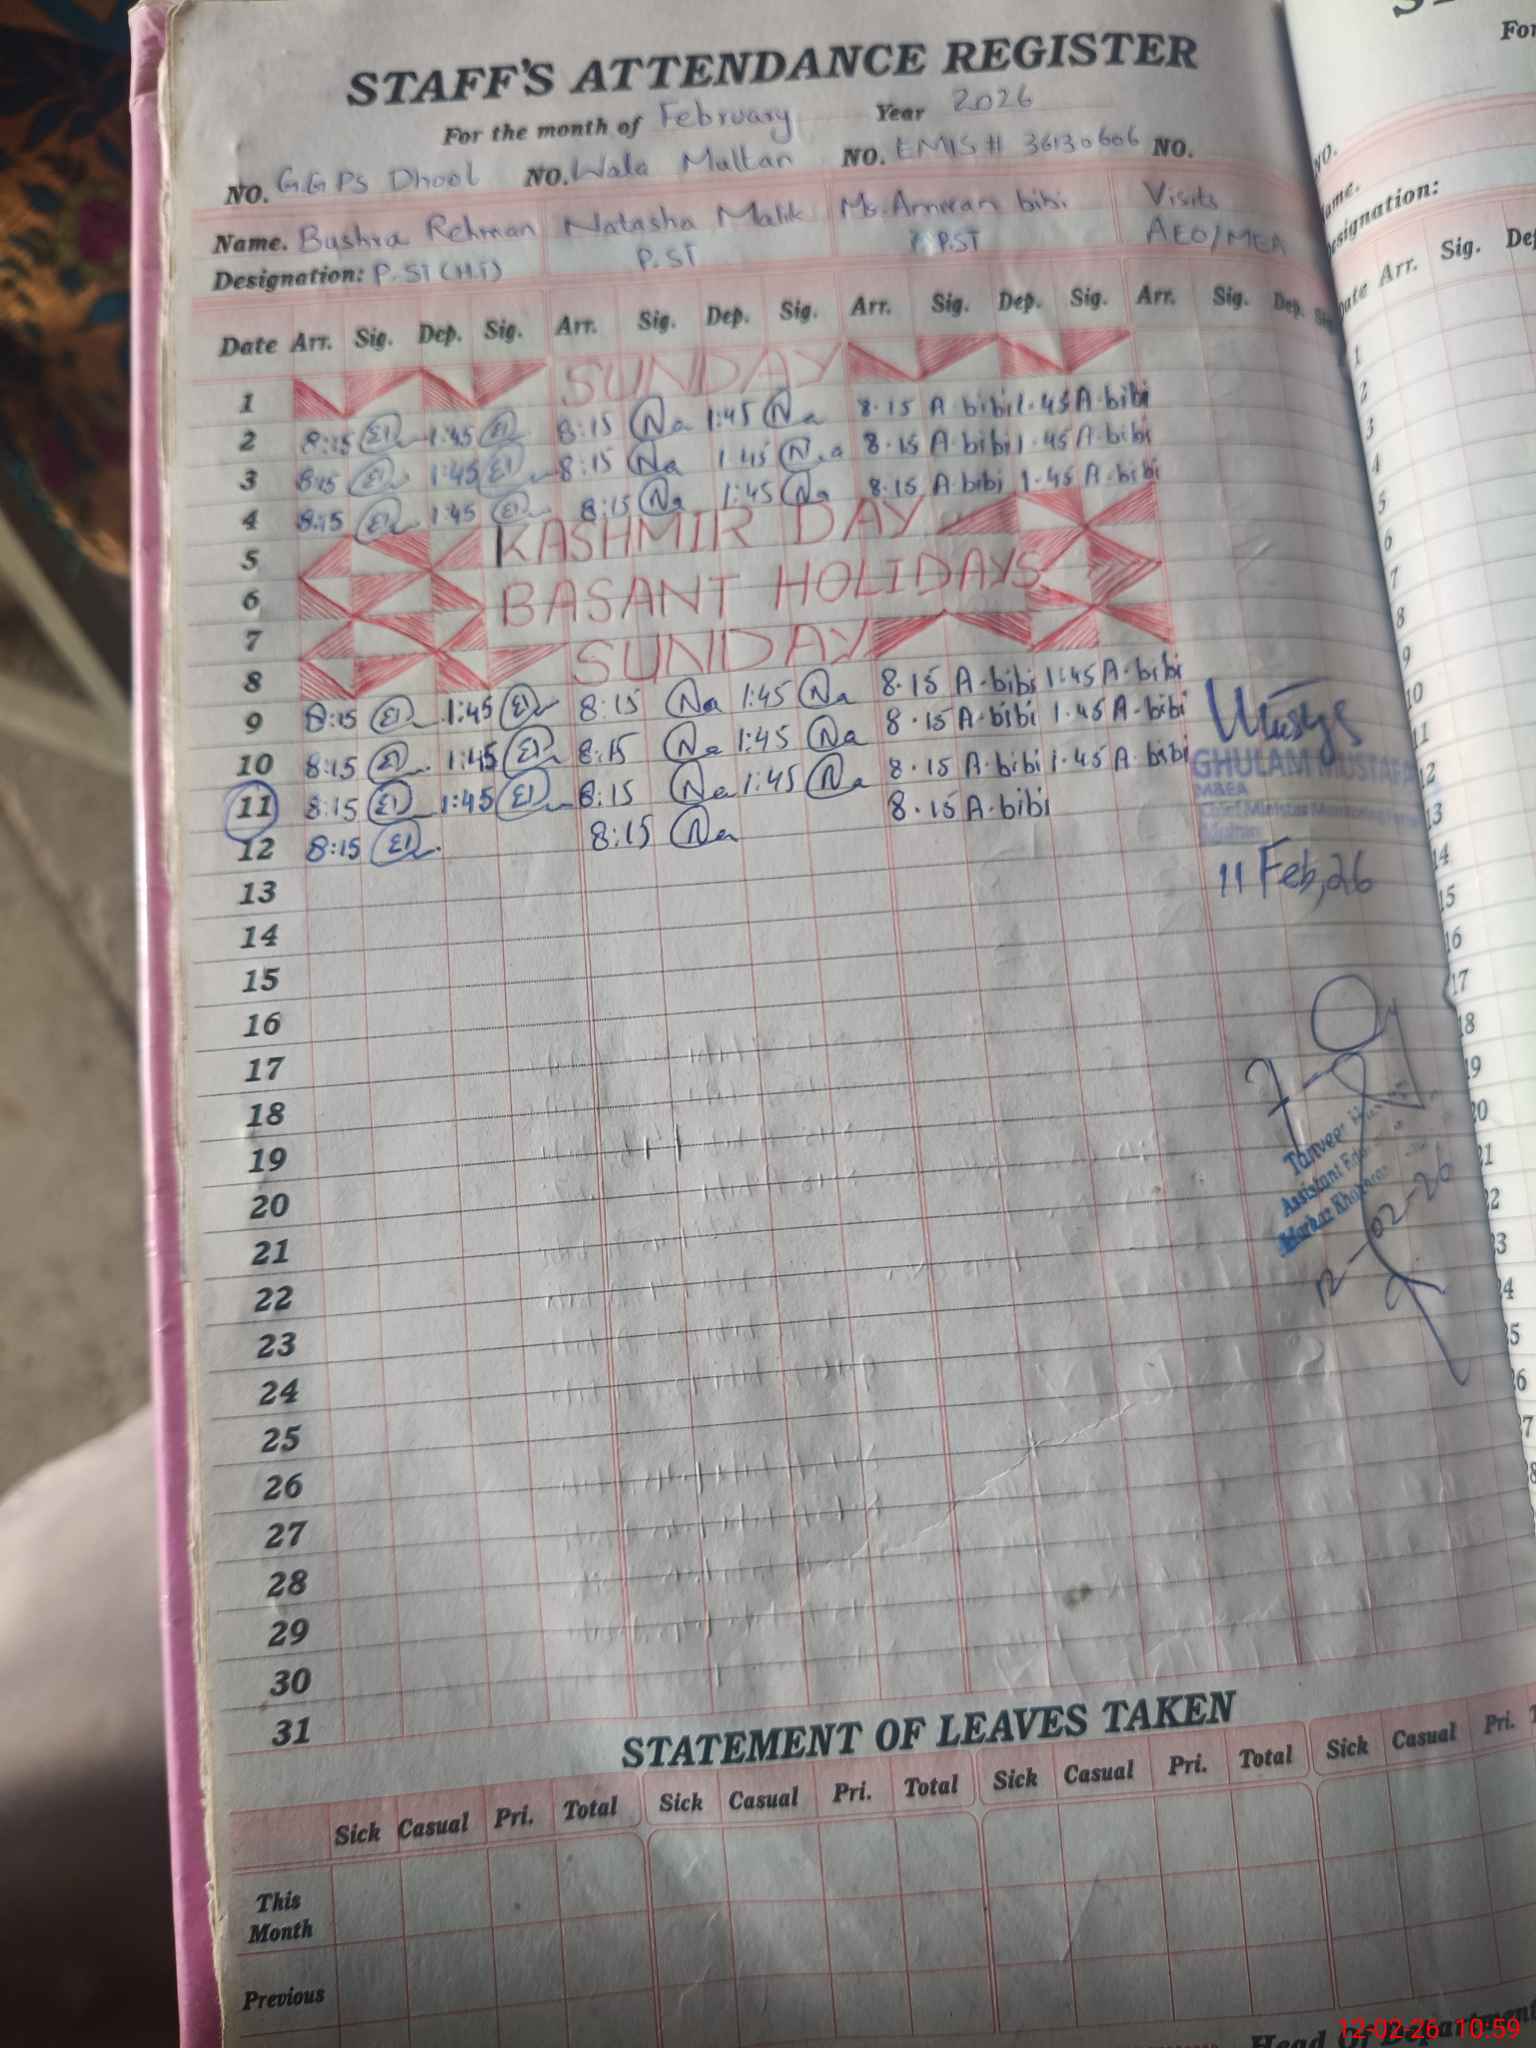 STAFF'S ATTENDANCE REGISTER
For the month of February Year 2026
NO. G.G PS Dhool NO. Wala Multan NO. EMIS # 36130606 NO.
Name. Bushra Rehman Natasha Malik Ms. bibi Visits
Designation: P.ST (H.T) P.ST P.ST AEO/MEA
Date Arr. Sig. Dep. Sig. Arr. Sig. Dep. Sig. Arr. Sig. Dep. Sig. Arr. Sig. Dep.
1 SUNDAY
2 8:15 1:45 8:15 Na 1:45 Na 8.15 A.bibi 1.45 A.bibi
3 8:15 1:45 8:15 Na 1:45 Na 8.15 A.bibi 1.45 A.bibi
4 8:15 1:45 8:15 Na 1:45 Na 8.15 A.bibi 1.45 A.bibi
5 KASHMIR DAY
6 BASANT HOLIDAYS
7
8 SUNDAY
9 8:15 1:45 8:15 Na 1:45 Na 8.15 A.bibi 1.45 A.bibi
10 8:15 1:45 8:15 Na 1:45 Na 8.15 A.bibi 1.45 A.bibi
11 8:15 1:45 8:15 Na 1:45 Na 8.15 A.bibi 1.45 A.bibi
12 8:15 8:15 Na 8.15 A.bibi
GHULAM MUSTAFA
MBEA
Chief Minister Monitoring
11 Feb, 26
13
14
15
16
17
18
19
20
21
22
23
24
25
26
27
28
29
30
31
Tanveer
Assistant
Markaz
12-02-26
STATEMENT OF LEAVES TAKEN
Sick Casual Pri. Total Sick Casual Pri. Total Sick Casual Pri. Total Sick Casual Pri.
This
Month
Previous
Head Of Department
12-02-26 10:59